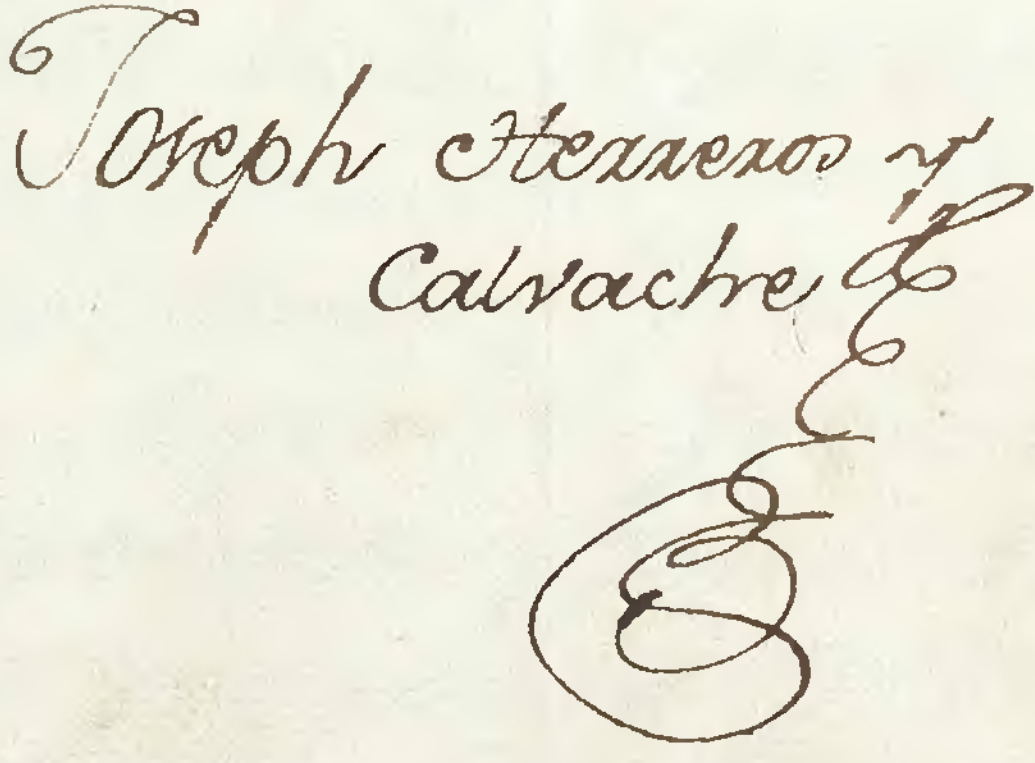 Joseph Herreros y
Calvache